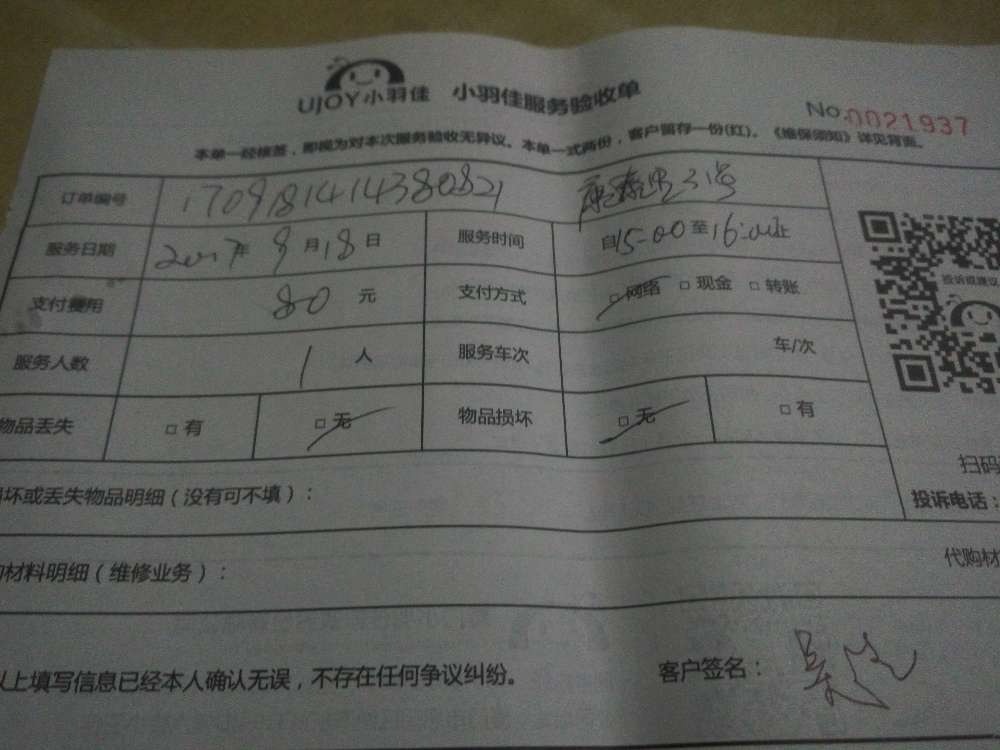 UJOY小羽佳 小羽佳服务验收单
No.0021937
本单一经核签，即视为对本次服务验收无异议。本单一式两份，客户留存一份(红)。《维保须知》详见背面。
订单编号 1709181414380821
服务日期 2017年 9月18日 服务时间 自15-00至16:00止
支付费用 80 元 支付方式 □网络 □现金 □转账
服务人数 1 人 服务车次 车/次
物品丢失 □有 □无 物品损坏 □无 □有
投诉或建议
扫码
坏或丢失物品明细（没有可不填）：
投诉电话：
材料明细（维修业务）：
代购材
以上填写信息已经本人确认无误，不存在任何争议纠纷。
客户签名：